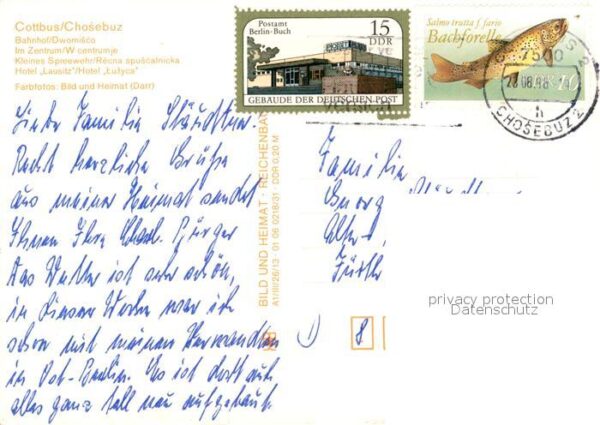 Cottbus/Chośebuz
Bahnhof/Dwornišćo
Im Zentrum/W centrumje
Kleines Spreewehr/Rěcna spušćalnicka
Hotel „Lausitz"/Hotel „Łužyca"
Farbfotos: Bild und Heimat (Darr)
Postamt
Berlin-Buch
15
DDR
GEBÄUDE DER DEUTSCHEN POST
Salmo trutta f. fario
Bachforelle
10
7500
08.88
h
CHOŚEBUZ 2
Liebe Familie
Recht herzliche Grüße
aus meiner Heimat sendet
Ihnen Ihre
Das Wetter ist sehr schön,
in dieser Woche war ich
schon mit meinen Verwandten
in Ost-Berlin. Es ist dort auch
alles ganz toll neu aufgebaut.
BILD UND HEIMAT · REICHENBACH
A1/III/26/13 01 06 0218/31 DDR 0,20 M
Familie
Georg
Fürth
1)
8
privacy protection
Datenschutz